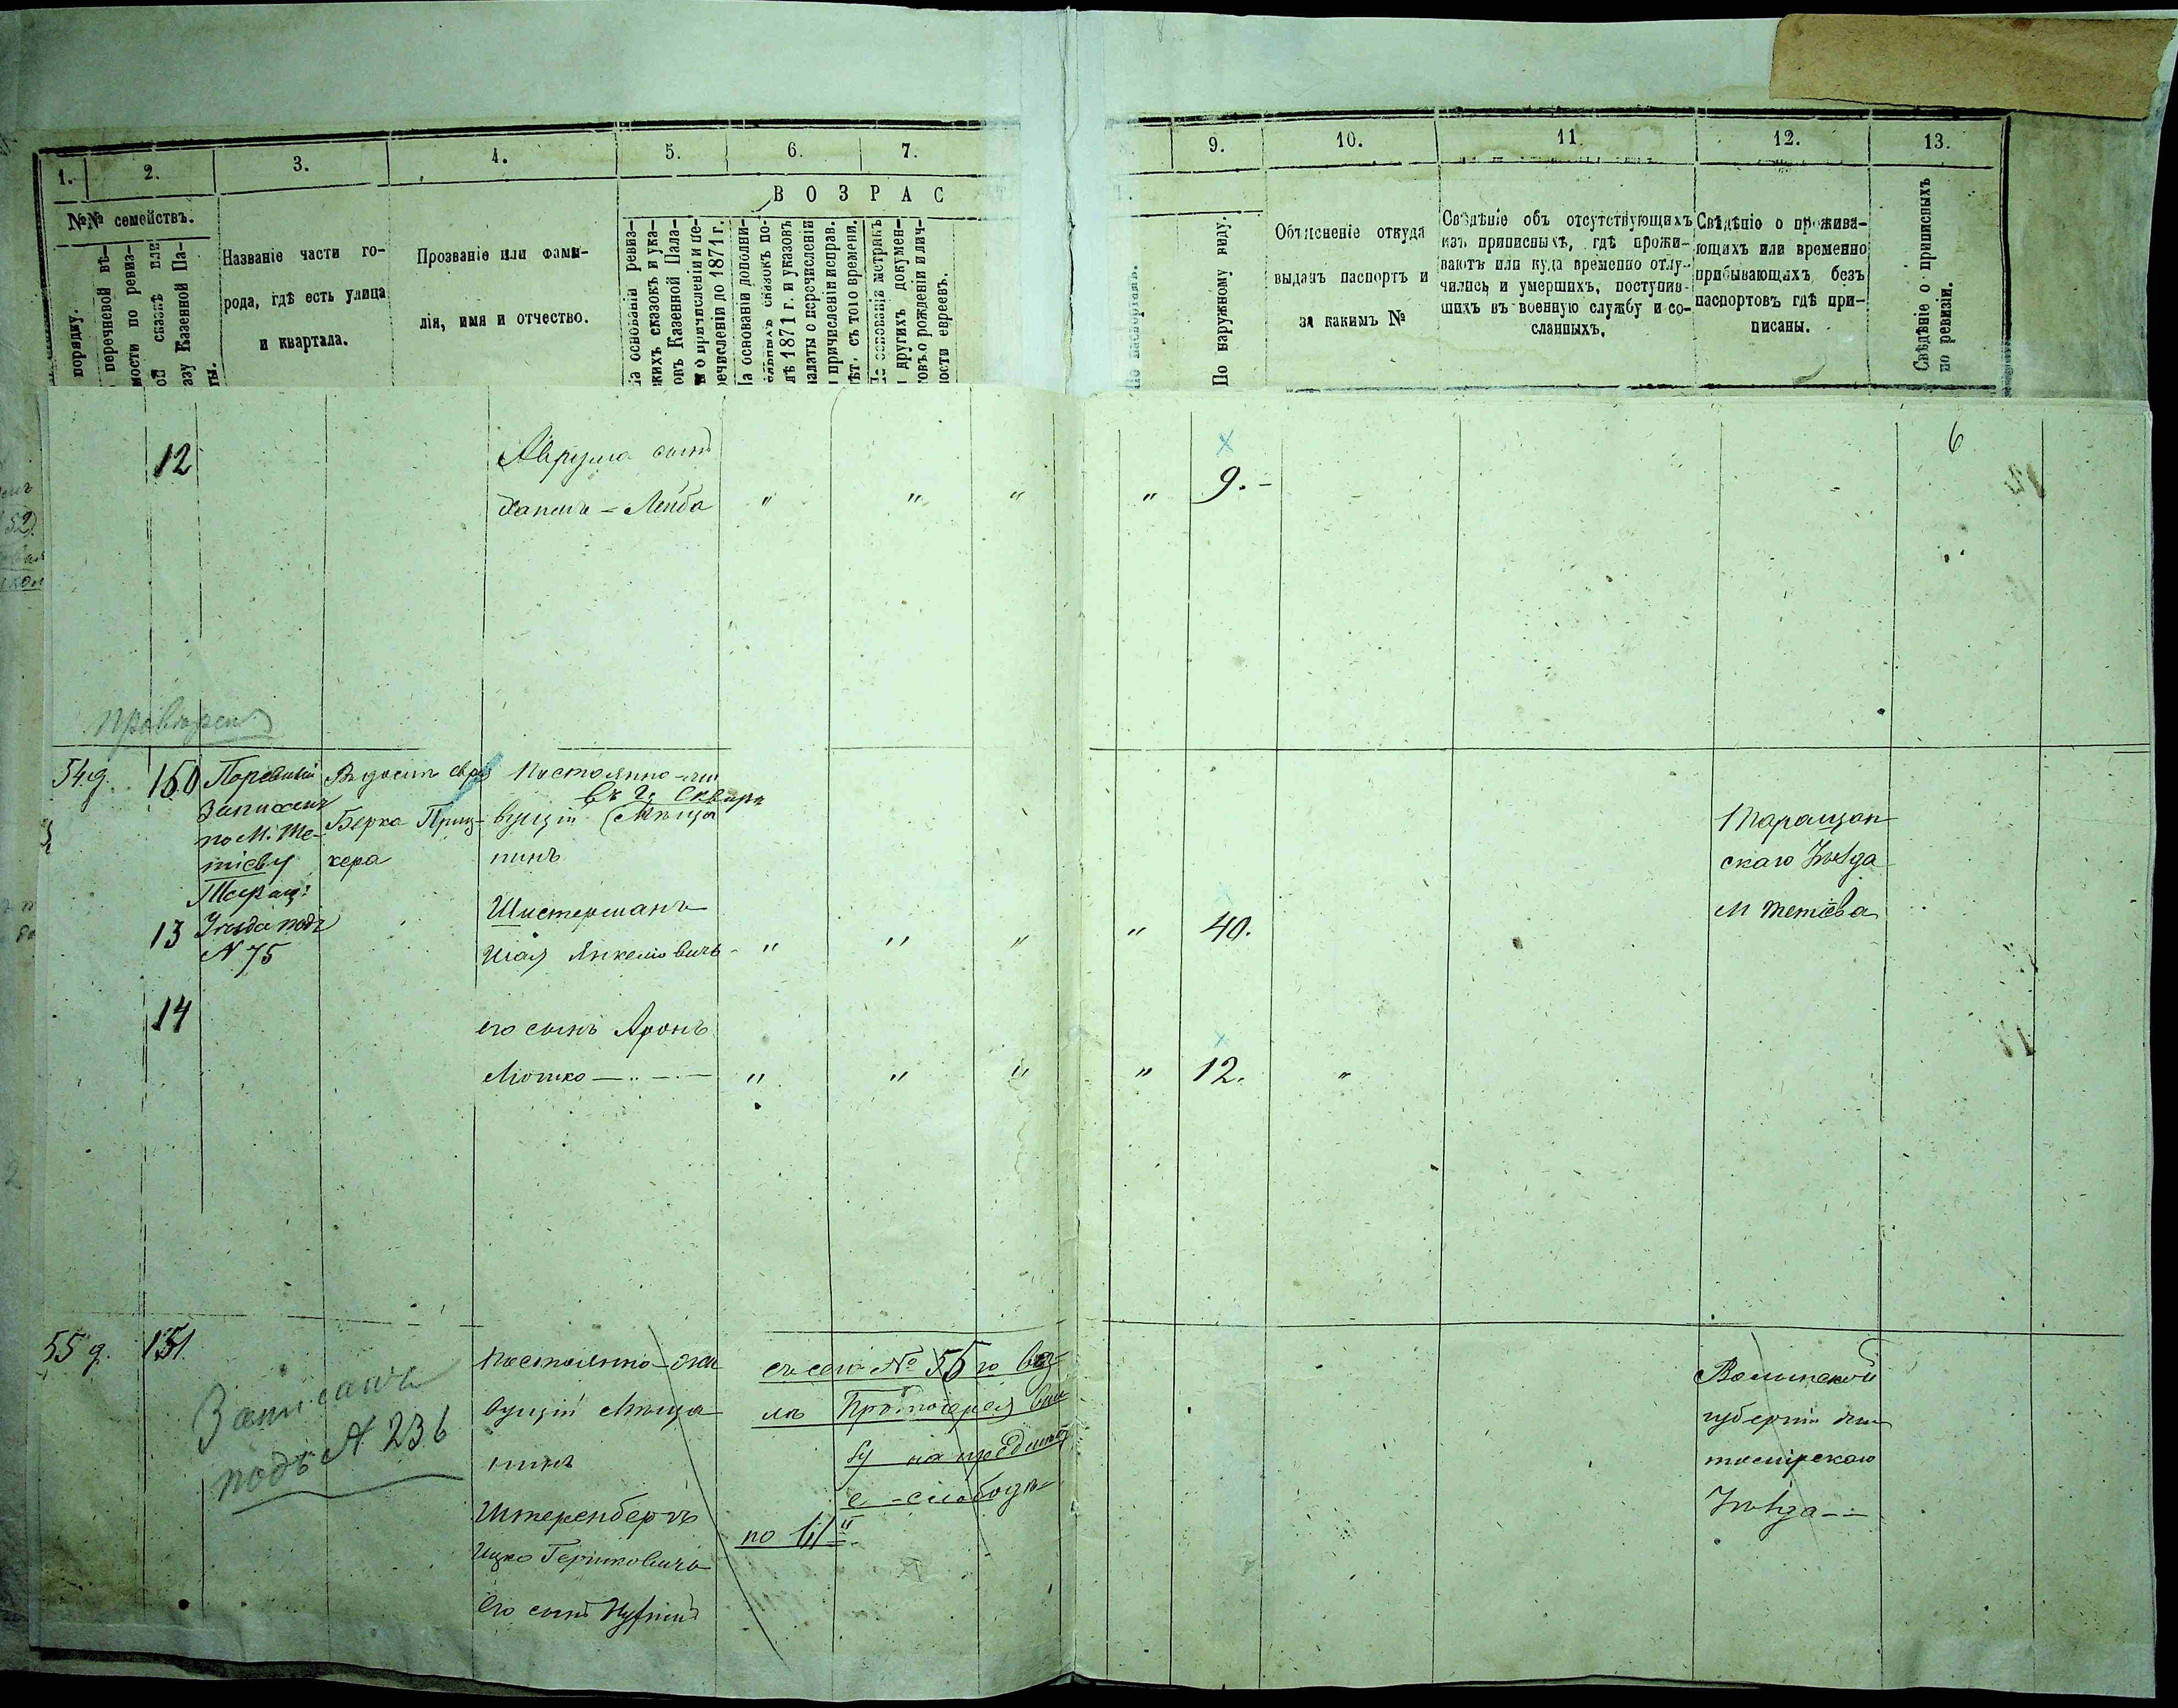 1.
2.
3.
4.
5.
6.
7.
9.
10.
11.
12.
13.
В О З Р А С
№№ семействъ.
порядку.
перечневой вѣ-
мости по ревиз-
ой сказкѣ или
азу Казенной Па-
ты.
Названіе части го-
рода, гдѣ есть улица
и квартала.
Прозваніе или фами-
лія, имя и отчество.
а основаніи ревиз-
жихъ сказокъ и ука-
овъ Казенной Пала-
и о причисленіи и пе-
речисленіи до 1871 г.
а основаніи дополни-
ельныхъ сказокъ по-
лѣ 1871 г. и указовъ
алаты о перечисленіи
и причисленіи исправ.
лѣт. съ того времени.
На основаніи метрикъ
и другихъ докумен-
товъ о рожденіи и лич-
ности евреевъ.
По паспортамъ.
По наружному виду.
Объясненіе откуда
выданъ паспортъ и
за какимъ №
Свѣдѣніе объ отсутствующихъ
изъ приписныхъ, гдѣ прожи-
ваютъ или куда временно отлу-
чились и умершихъ, поступив-
шихъ въ военную службу и со-
сланныхъ.
Свѣдѣніе о прожива-
ющихъ или временно
прибывающихъ безъ
паспортовъ гдѣ при-
писаны.
Свѣдѣніе о приписныхъ
по ревизіи.
6
12
Аврума сынъ
Ханемъ-Лейба " " " " 9.-
54 д. 150
Записанъ
по М. Те-
тіеву
Таращ:
Уѣзда подъ
N 75
Въ домѣ евр.
Берка Приц-
кера
Постоянно-жи
въ г. Сквирѣ
вущій (Мѣща
нинъ
Таращан
скаго Уѣзда
М Тетіева
13
Шистерманъ
Шая Янкеліовичъ " " " " 40.
14
его сынъ Аронъ
Мошко " " " " 12. "
55 д. 151.
Записанъ
подъ N 236
Постоянно-жи
вущій Мѣща
нинъ
Штеренбергъ
Ицко Гершковичъ
Его сынъ
съ сего № 55 го
по 61й
Волынской
губерніи Жи
томірскаго
Уѣзда